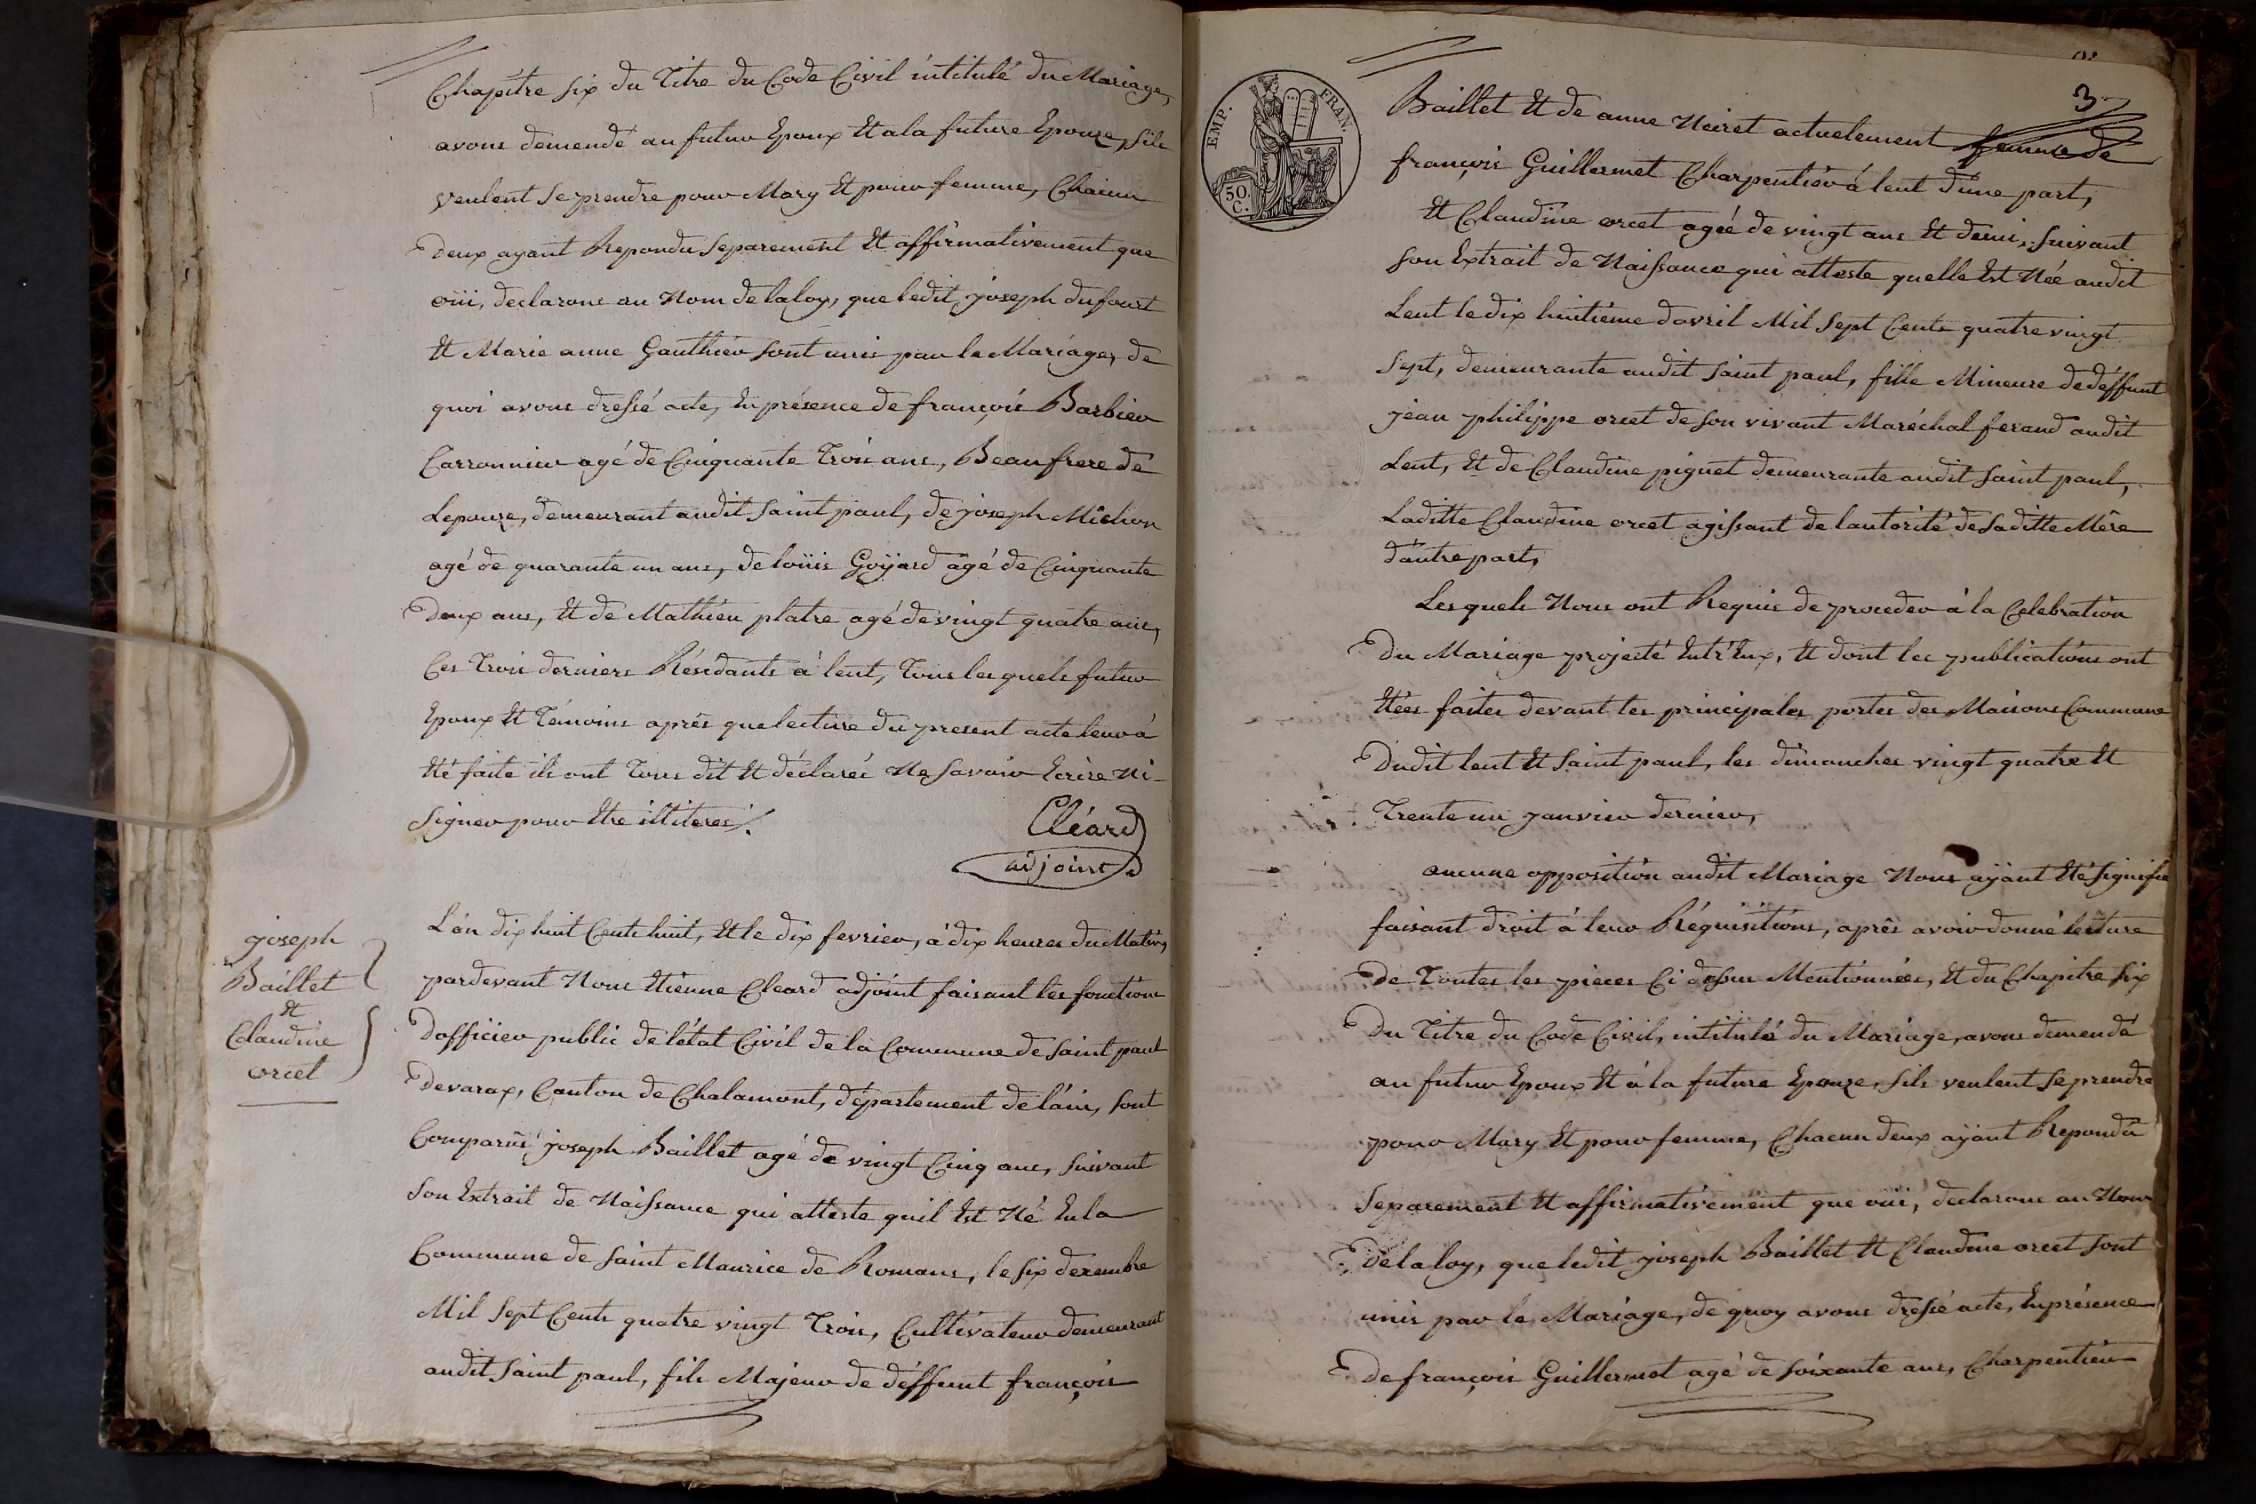 Chapitre six du Titre du Code Civil intitulé du Mariage,
avons demendé au futur Epoux Et a la future Epouze, sils
veulent se prendre pour Mary Et pour femme, Chacun
Deux ayant Repondu Separement Et affirmativement que
oüi, declarons au Nom de la loy, que ledit joseph dufourt
Et Marie anne Gauthier sont unis par le Mariage, de
quoi avons dressé acte, En présence de françois Barbier
Carronnier agé de Cinquante Trois ans, Beaufrere de
Lepouze, demeurant audit Saint paul, de joseph Michon
agé de quarante un ans, de loüis Goÿard agé de Cinquante
Deux ans, Et de Mathieu platre agé de vingt quatre ans,
Ces Trois derniers Résidants a lent, Tous les quels futur
Epoux Et Témoins aprés que lecture du present acte leur à
Eté faite ils ont Tous dit Et déclaréé Ne savoir Ecrire Ni
Signer pour Etre illiterés /.
Cléard
adjoint
joseph
Baillet
Et
Claudine
orcet
L'an dix huit Cents huit, Et le dix fevrier, à dix heures du Matin,
pardevant Nous Etienne Cleard adjoint faisant les fonctions
Dofficier public de l'état Civil de la Commune de Saint paul
Devarax, Canton de Chalamont, département de láin, sont
Comparus joseph Baillet agé de vingt Cinq ans, suivant
son Extrait de Naissance qui atteste quil Est Né En la
Commune de Saint Maurice de Romans, le six decembre
Mil Sept Cents quatre vingt Trois, Cultivateur demeurant
audit Saint paul, fils Majeur de déffunt françois
3
Baillet Et de anne Neiret actuelement femme de
françois Guillermet Charpentier á lent d'une part,
Et Claudine orcet agéé de vingt ans Et demi, suivant
son Extrait de Naissance qui atteste quelle Est Néé audit
Lent le dix huitieme d'avril Mil Sept Cents quatre vingt
Sept, demeurante audit Saint paul, fille Mineure de déffunt
jean philippe orcet de son vivant Maréchal ferand audit
Lent, Et de Claudine piguet demeurante audit Saint paul,
Laditte Claudine orcet agissant de lautorité de Saditte Mére
d'autre part,
Les quels Nous ont Requis de proceder à la Celebration
Du Mariage projecté Entr'Eux, Et dont les publications ont
Etées faites devant les principales portes des Maisons Commune
Dudit lent Et Saint paul, les dimanches vingt quatre Et
Trente un janvier dernier,
aucune opposition audit Mariage Nous aÿant Eté Signifié
faisant droit à leur Réquisitions, aprés avoir donné lecture
De Toutes les pieces Ci dessus Mentionnées, Et du Chapitre six
Du Titre du Code Civil, intitulé du Mariage, avons demendé
au futur Epoux Et à la future Epouze, sils veulent Se prendre
pour Mary Et pour femme, Chacun deux aÿant Repondu
Separement Et affirmativement que oüi, declarons au Nom
De la loy, que ledit joseph Baillet Et Claudine orcet sont
unis par le Mariage, de quoy avons dressé acte, En présence
De françois Guillermet agé de soixante ans, Charpentier
EMP. FRAN.
50.
C.